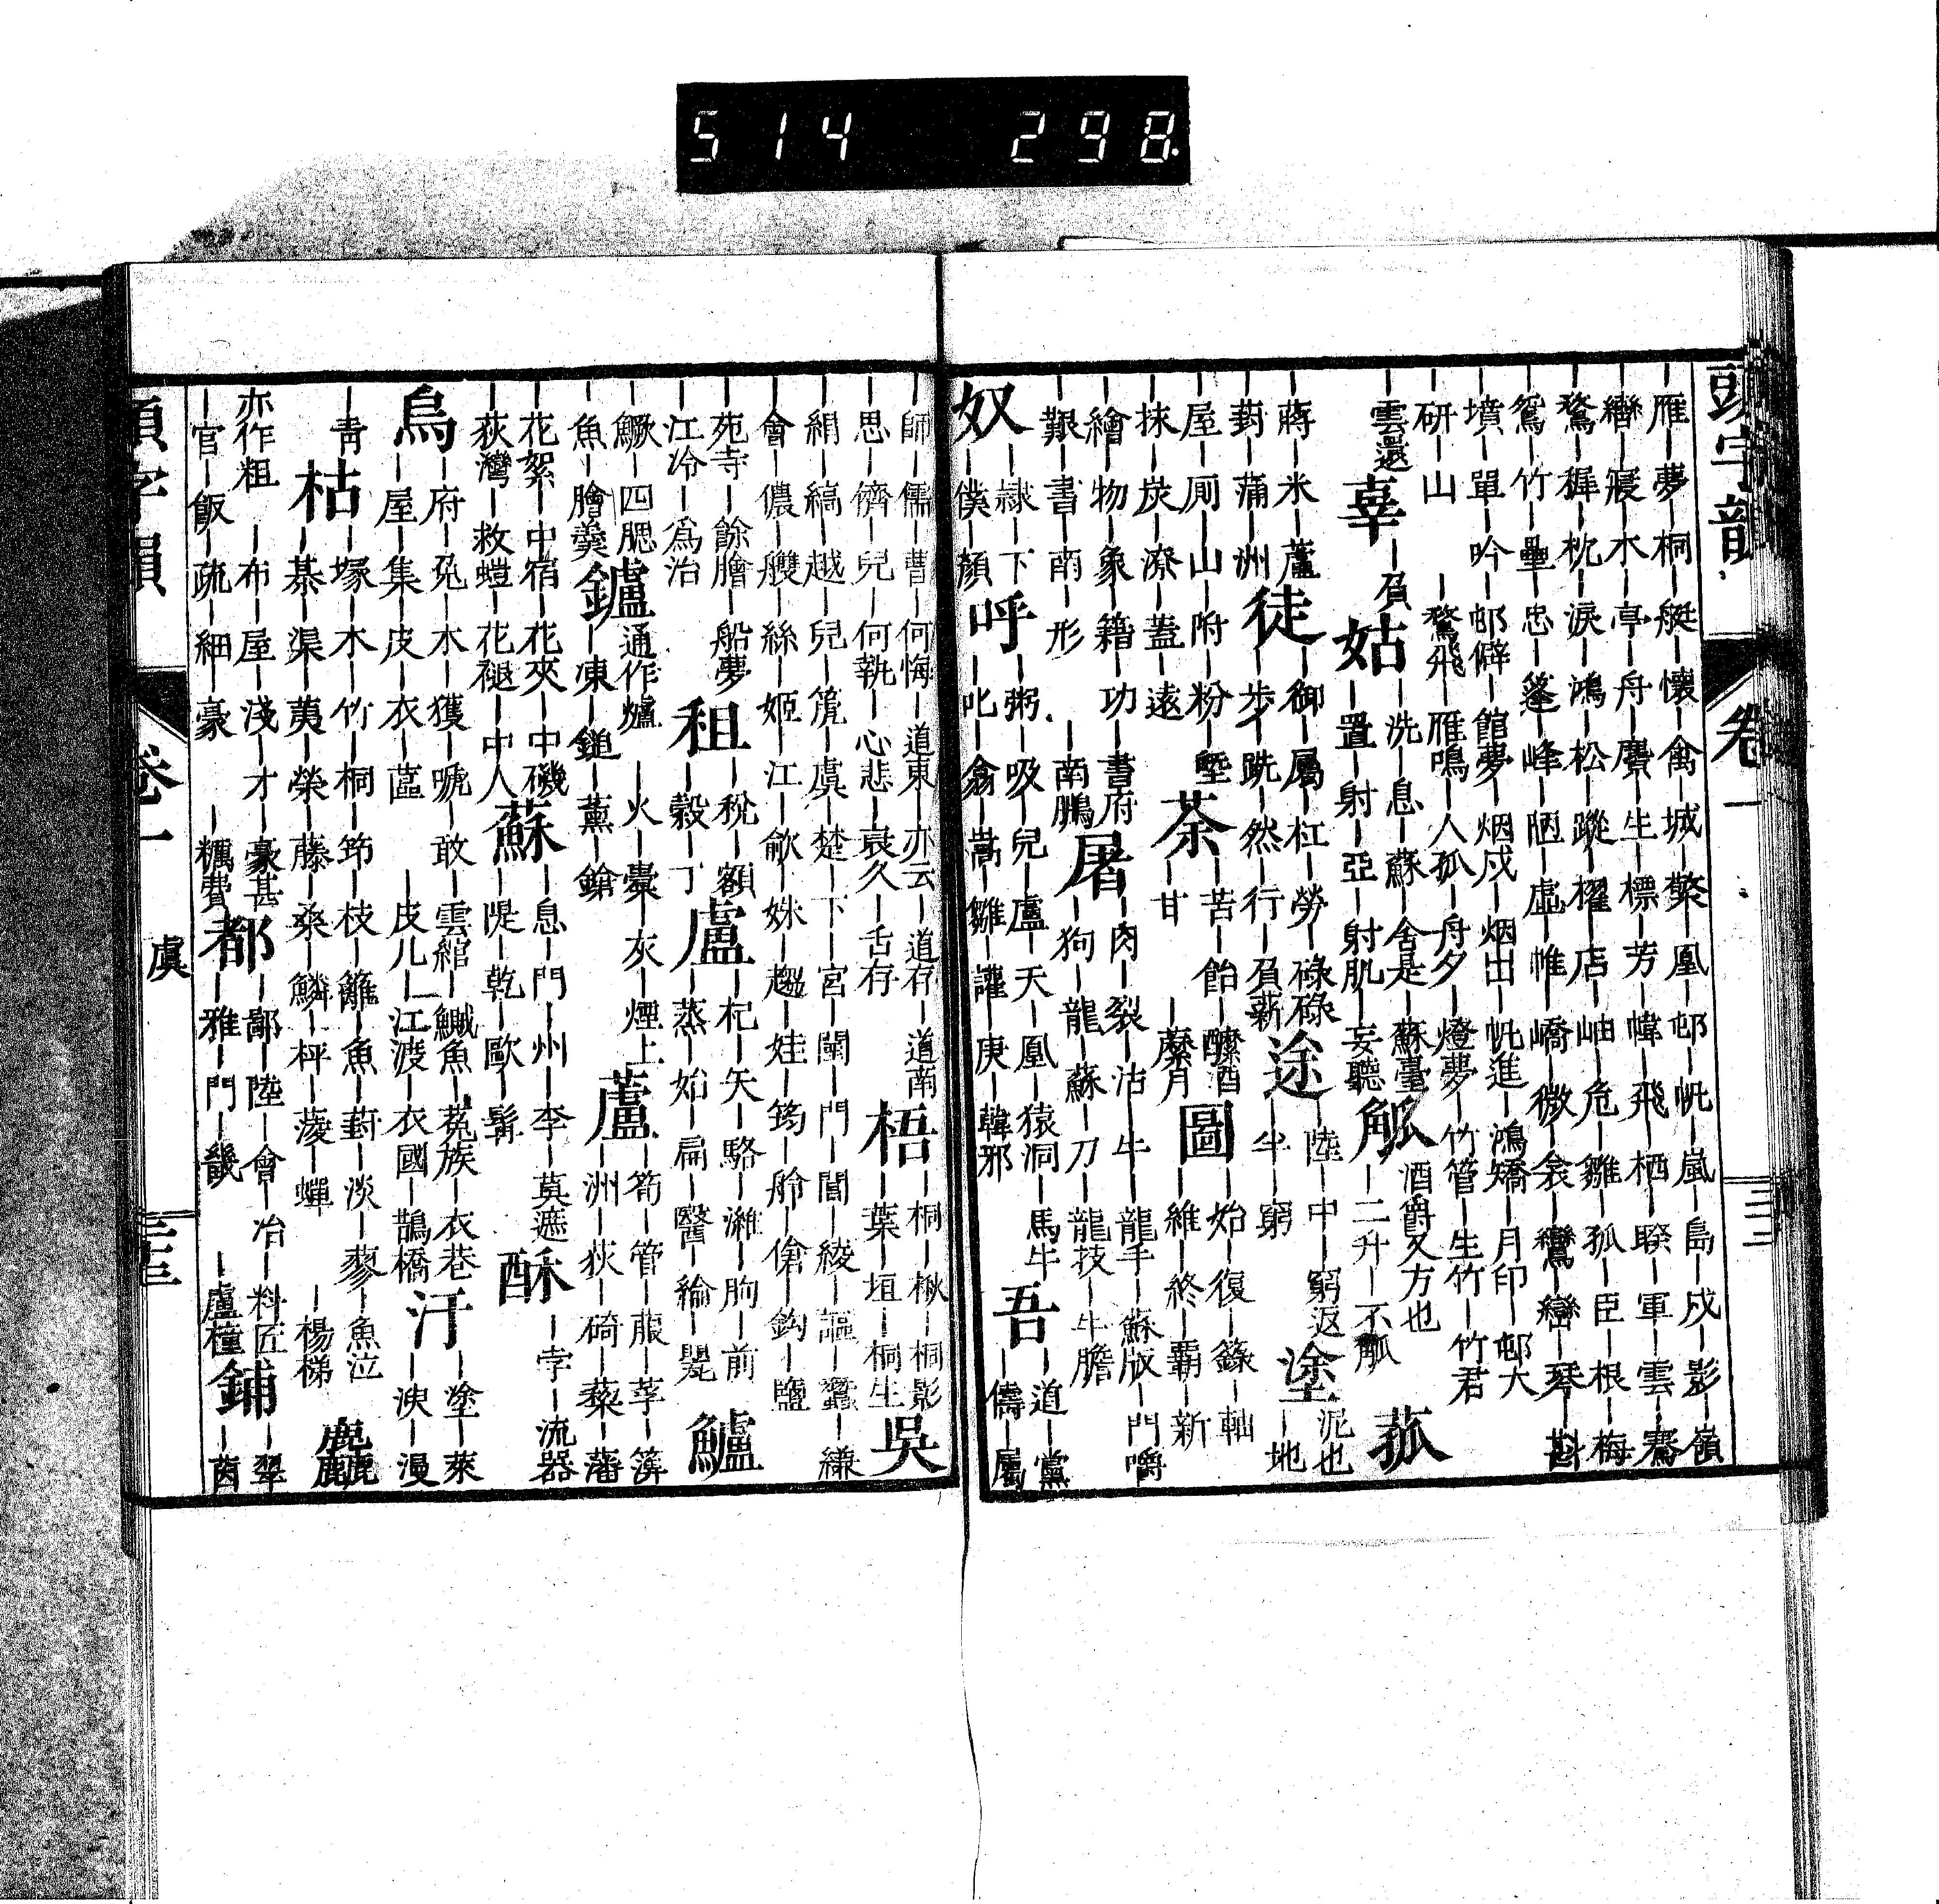 514 298
頭字韻 卷一 三三
雁｜夢｜桐｜艇｜懷｜禽｜城｜檠｜凰｜邨｜帆｜嵐｜島｜戍｜影｜嶺
｜寢｜木｜亭｜舟｜鸎｜生｜標｜芳｜幃｜飛｜栖｜睽｜軍｜雲｜騫
鶩｜穉｜枕｜淚｜鴻｜松｜蹤｜櫂｜店｜岫｜危｜雛｜孤｜臣｜根｜梅
鴛｜竹｜壘｜忠｜篷｜峰｜陋｜虛｜帷｜嶠｜微｜衾｜鸞｜戀｜琴｜斟
墳｜單｜吟｜邨僻｜館夢｜烟戍｜烟出｜帆進｜鴻矯｜月印｜邨大
研｜山｜鶩飛｜雁鳴｜人孤｜舟夕｜燈夢｜竹管｜生竹｜竹君
雲還 辜｜負 姑｜洗｜息｜蘇｜舍是｜蘇臺 酒爵又方也 菰
｜置｜射｜亞｜射肌｜妄聽 觚｜二升｜不觚
蔣｜米｜蘆 徒｜御｜屬｜杠｜勞｜碌碌 途 陸｜中｜窮返 塗 泥也
葑｜蒲｜洲｜步｜跣｜然｜行｜負薪｜半｜窮｜地
屋｜厠｜山｜附｜粉｜墍 荼｜苦｜飴｜醿酒 圖｜始｜復｜籙｜軸
抹｜炭｜潦｜蓋｜遠｜甘｜縻月｜維｜終｜霸｜新
繪｜物｜象｜籍｜功｜書府 屠｜肉｜裂｜沽｜牛｜龍手｜蘇版｜門嚼
艱｜書｜南｜形｜南鵬｜狗｜龍｜蘇｜刀｜龍技｜牛膽
奴｜隸｜下 呼｜粥｜吸｜兒｜盧｜天｜凰｜猿洞｜馬牛 吾｜道｜黨
｜僕｜顏｜叱｜翕｜嵩｜雛｜讙｜庚｜韓邪｜儔｜屬
｜師｜儒｜曹｜何悔｜道東｜亦云｜道存｜道南 梧｜桐｜楸｜桐影 吳
｜思｜儕｜兒｜何執｜心悲｜哀久｜舌存｜葉｜垣｜桐生
絹｜縞｜越｜兒｜篪｜虞｜楚｜下｜宮｜閶｜門｜閭｜綾｜謳｜蠶｜縑
會｜儂｜艭｜絲｜姬｜江｜歈｜姝｜趨｜娃｜筠｜舲｜傖｜鉤｜鹽
苑寺｜餘膾｜船夢 租｜稅｜額 盧｜杞｜矢｜駱｜濰｜朐｜前 鱸
江冷｜為治｜穀｜丁｜蒸｜始｜扁｜醫｜綸｜
鱖｜四腮 鑪 通作爐｜火｜橐｜灰｜煙上 蘆｜筍｜管｜菔｜葶｜簰
魚｜膾羹｜凍｜鎚｜薰｜鎗｜洲｜荻｜碕｜蘂｜藩
花絮｜中宿｜花夾｜中磯 蘇｜息｜門｜州｜李｜莫遮 酥｜李｜流器
荻灣｜救蝗｜花褪｜中人｜隄｜乾｜歐｜髯
烏｜府｜兔｜木｜獲｜嗁｜敢｜雲綰｜鰔魚｜菟族｜衣巷 汙｜塗｜萊
｜屋｜集｜皮｜衣｜蓲｜皮几｜江渡｜衣國｜鵲橋｜洟｜漫
｜青 枯｜塚｜木｜竹｜桐｜笻｜枝｜籬｜魚｜葑｜淡｜蓼｜魚泣 麤
｜棊｜渠｜荑｜榮｜藤｜桑｜鱗｜枰｜菠｜蟬｜楊梯
亦作粗｜布｜屋｜淺｜才｜豪甚 都｜鄙｜陸｜會｜冶｜料匠 鋪｜翠
｜官｜飯｜疏｜細｜豪｜糲費｜雅｜門｜畿｜盧橦｜茵
卷一 虞 三三